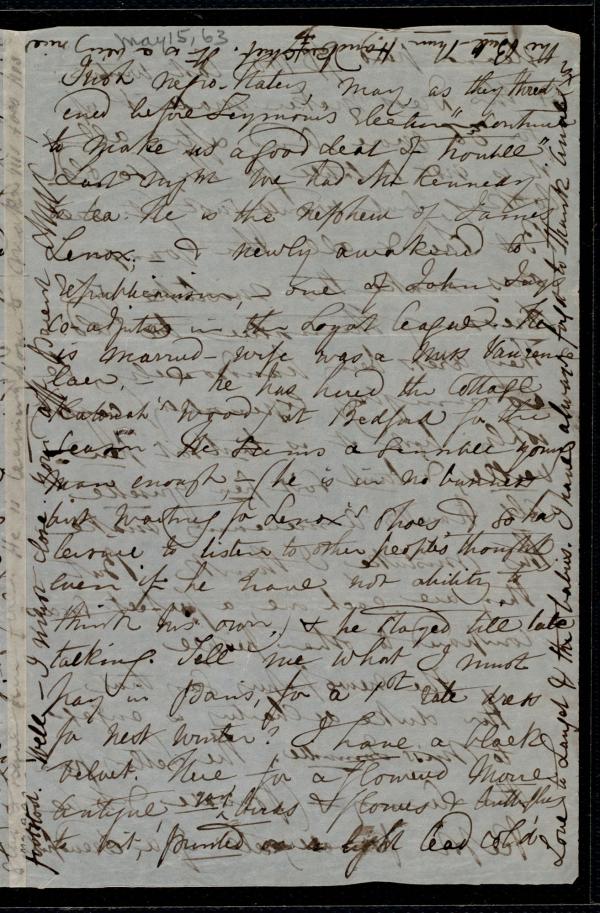 May 15, 63
Irish negro-haters, may as they threat
ened before Seymour's Election "continue
to make us a good deal of trouble".
Last night we had Mr Kennedy
to tea. He is the nephew of James
Lenox, - & newly awakened to
republicanism, - one of John Jay's
co-adjutors in the Loyal League. He
is married - wife was a Miss Van Rens
laer, - & he has hired the Cottage
Katonah's Wood, at Bedford for the
Season. He seems a sensible young
man enough - (he is in no business
but waiting for Lenox's shoes) so has
leisure to listen to other people's thoughts
even if he have not ability to
think his own,) & he stayed till late
talking. Tell me what I must
pay in Paris, for a 1st rate dress
for next winter? I have a black
velvet. Here for a flowered Moire
antique birds & flowers & butterflies
to boot, printed on a light lead col'd
Well - I must close. Your aff. Parent
Love to & the babies. I have always to thank